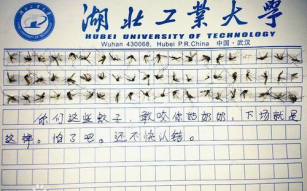 湖北工業大學
HUBEI UNIVERSITY OF TECHNOLOGY
Wuhan 430068, Hubei P.R.China 中国·武汉
你们这些蚊子,敢咬你的奶奶,下场就是
这样。怕了吧。还不快认错。